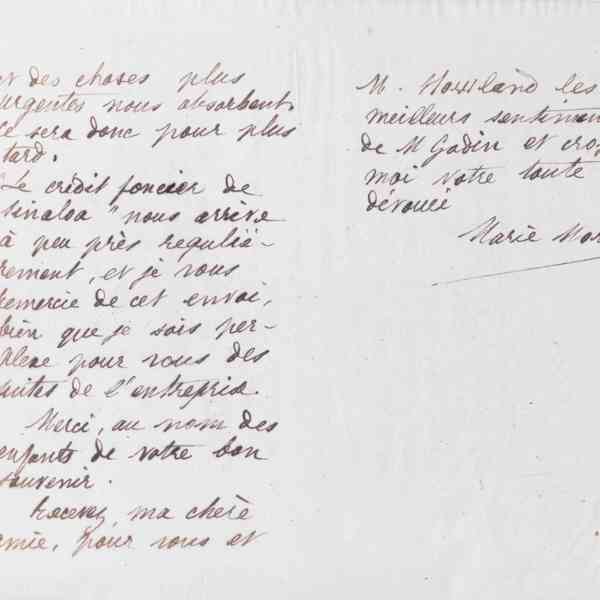 et des choses plus
urgentes nous absorbent,
ce sera donc pour plus
tard.
"Le crédit foncier de
Sinaloa" nous arrive
à peu près reguliè-
rement, et je vous
remercie de cet envoi,
bien que je sois per-
plexe pour vous des
suites de l'entreprise.
Merci, au nom des
enfants de votre bon
souvenir.
Recevez, ma chère
amie, pour vous et
M. Howland les
meilleurs sentimen
de M Godin et cro
moi votre toute
dévouée
Marie Mor